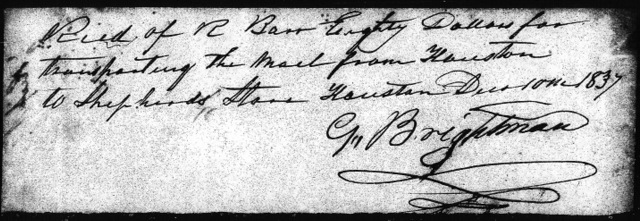 Recd of R Barr Eighty Dollars for
transporting the Mail from Houston
to Shepherds Store Houston Dec 10th 1837
G Brightman